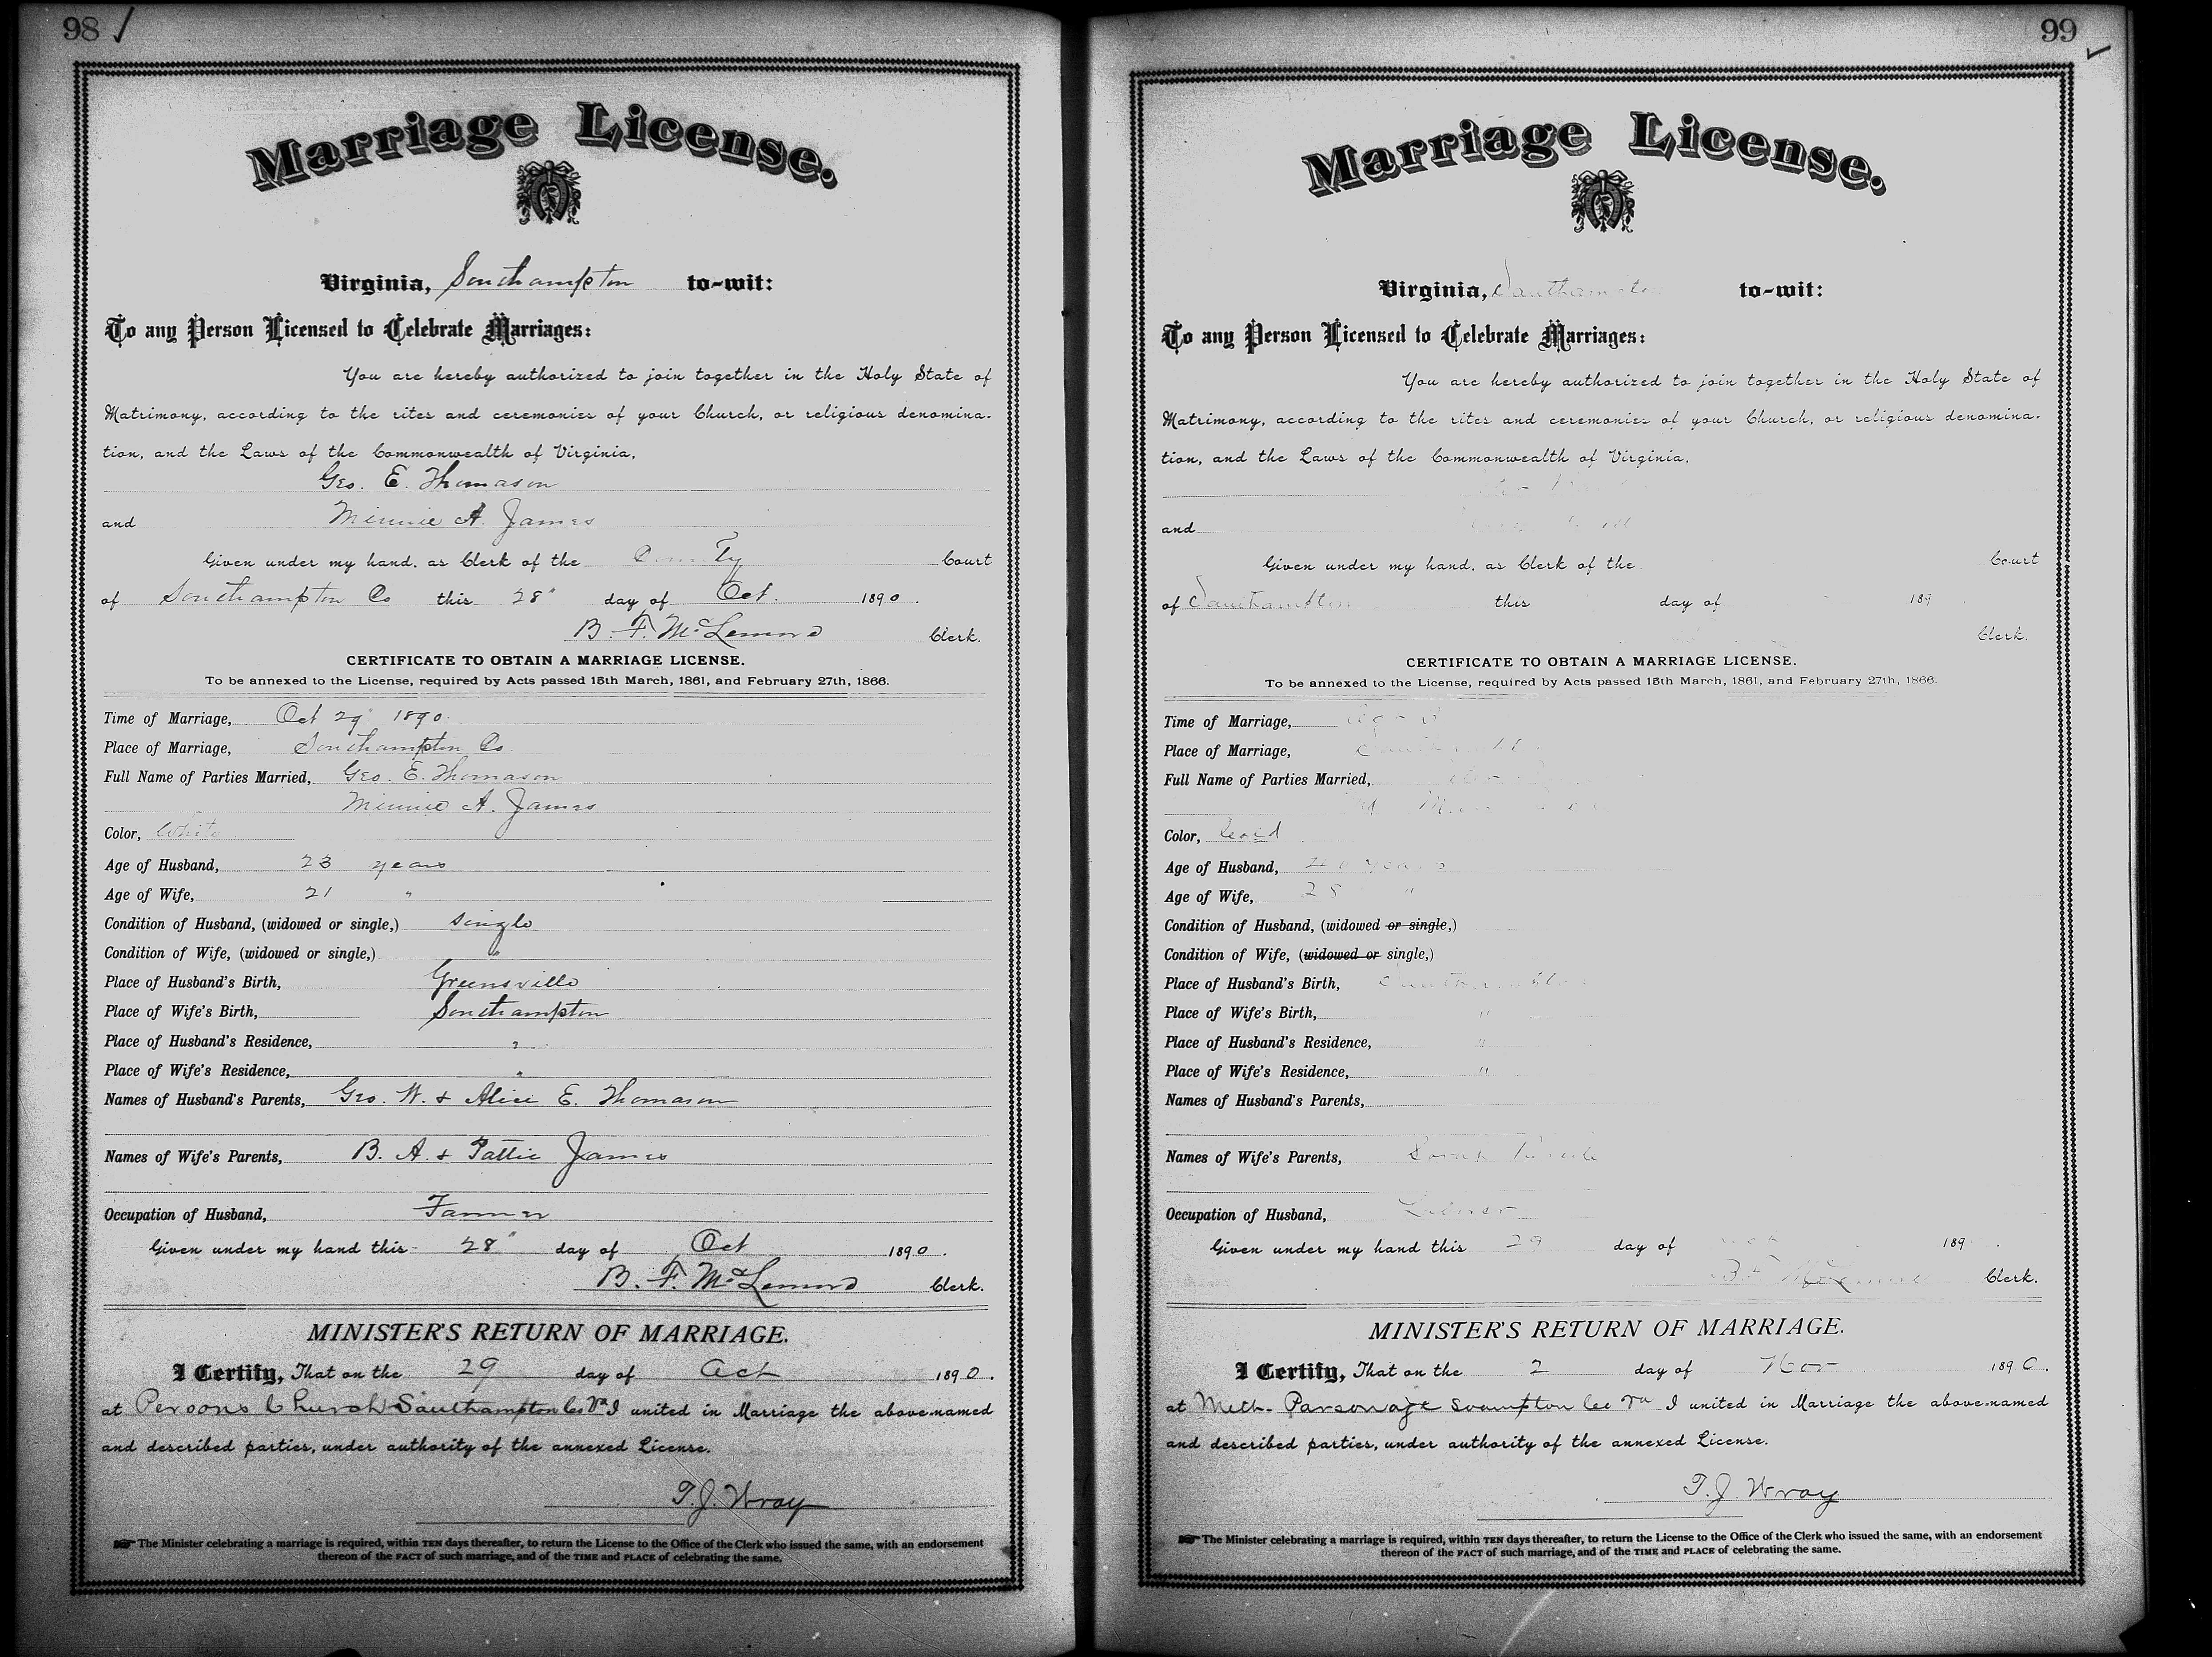 98
Marriage License.
Virginia, Southampton to-wit:
To any Person Licensed to Celebrate Marriages:
You are hereby authorized to join together in the Holy State of
Matrimony, according to the rites and ceremonies of your Church, or religious denomina-
tion, and the Laws of the Commonwealth of Virginia,
Geo. E. Thomason
and Minnie A. James
Given under my hand, as Clerk of the County Court
of Southampton Co this 28" day of Oct. 1890.
B. F. McLemore Clerk.
CERTIFICATE TO OBTAIN A MARRIAGE LICENSE.
To be annexed to the License, required by Acts passed 15th March, 1861, and February 27th, 1866.
Time of Marriage, Oct 29" 1890.
Place of Marriage, Southampton Co.
Full Name of Parties Married, Geo. E. Thomason
Minnie A. James
Color, White
Age of Husband, 23 years
Age of Wife, 21 "
Condition of Husband, (widowed or single,) single
Condition of Wife, (widowed or single,) "
Place of Husband's Birth, Greensville
Place of Wife's Birth, Southampton
Place of Husband's Residence, "
Place of Wife's Residence, "
Names of Husband's Parents, Geo. W. & Alice E. Thomason
Names of Wife's Parents, B. A. & Pattie James
Occupation of Husband, Farmer
Given under my hand this 28" day of Oct 1890.
B. F. McLemore Clerk.
MINISTER'S RETURN OF MARRIAGE.
I Certify, That on the 29 day of Oct 1890.
at Persons Church Southampton Co Va I united in Marriage the above-named
and described parties, under authority of the annexed License.
T. J. Wray
The Minister celebrating a marriage is required, within TEN days thereafter, to return the License to the Office of the Clerk who issued the same, with an endorsement
thereon of the FACT of such marriage, and of the TIME and PLACE of celebrating the same.
99
Marriage License.
Virginia, Southampton to-wit:
To any Person Licensed to Celebrate Marriages:
You are hereby authorized to join together in the Holy State of
Matrimony, according to the rites and ceremonies of your Church, or religious denomina-
tion, and the Laws of the Commonwealth of Virginia,
and
Given under my hand, as Clerk of the Court
of Southampton this day of 189
Clerk.
CERTIFICATE TO OBTAIN A MARRIAGE LICENSE.
To be annexed to the License, required by Acts passed 15th March, 1861, and February 27th, 1866.
Time of Marriage,
Place of Marriage,
Full Name of Parties Married,
Color, Cold
Age of Husband, 40 years
Age of Wife, 28 "
Condition of Husband, (widowed or single,)
Condition of Wife, (widowed or single,)
Place of Husband's Birth, Southampton
Place of Wife's Birth, "
Place of Husband's Residence, "
Place of Wife's Residence, "
Names of Husband's Parents,
Names of Wife's Parents, Sarah
Occupation of Husband,
Given under my hand this 29 day of 189
B. F. McLemore Clerk.
MINISTER'S RETURN OF MARRIAGE.
I Certify, That on the 2 day of Nov 1890.
at Meth. Parsonage Co Va I united in Marriage the above-named
and described parties, under authority of the annexed License.
T. J. Wray
The Minister celebrating a marriage is required, within TEN days thereafter, to return the License to the Office of the Clerk who issued the same, with an endorsement
thereon of the FACT of such marriage, and of the TIME and PLACE of celebrating the same.